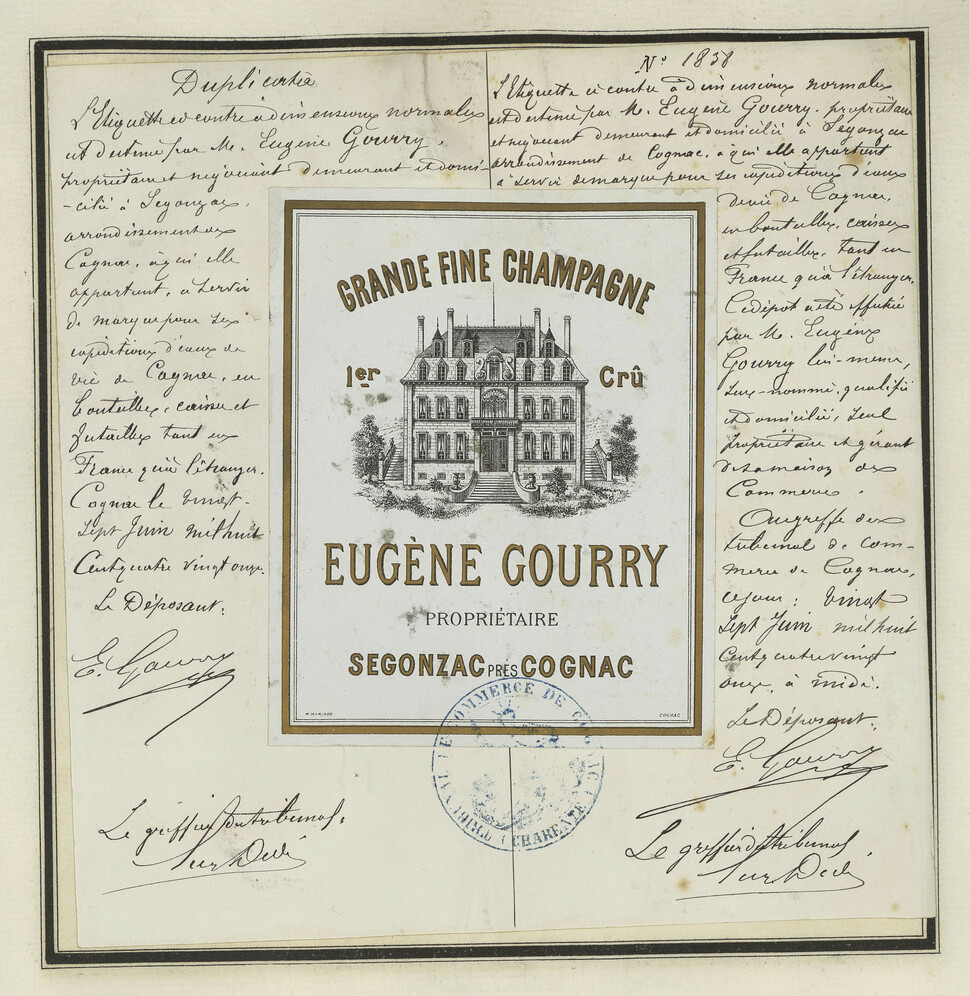 Duplicata
L'Etiquette ci contre à dimensions normales
est destinée par M. Eugène Gourry,
propriétaire et négociant demeurant et domi-
-cilié à Segonzac,
arrondissement de
Cognac, à qui elle
appartient, à servir
de marque pour ses
expéditions d'eaux de
vie de Cognac, en
bouteilles, caisses et
futailles tant en
France qu'à l'étranger.
Cognac le vingt-
sept Juin mil huit
Cent quatre vingt onze.
Le Déposant:
E. Gourry
Le greffier du tribunal,
N° 1838
L'Etiquette ci contre à dimensions normales
est destinée par M. Eugène Gourry, propriétaire
et négociant demeurant et domicilié à Segonzac
arrondissement de Cognac, à qui elle appartient
à servir de marque pour ses expéditions d'eaux
de vie de Cognac,
en bouteilles, caisses
et futailles, tant en
France qu'à l'étranger.
Ce dépôt a été effectué
par M. Eugène
Gourry lui-même,
sus-nommé, qualifié
et domicilié, seul
propriétaire et gérant
de sa maison de
Commerce.
Au greffe du
tribunal de Com-
merce de Cognac,
ce jour: vingt
sept Juin mil huit
Cent quatre vingt
onze, à midi.
Le Déposant:
E. Gourry
Le greffier du tribunal
GRANDE FINE CHAMPAGNE
1er Crû
EUGÈNE GOURRY
PROPRIÉTAIRE
SEGONZAC PRÈS COGNAC
COGNAC
TRIBUNAL DE COMMERCE DE COGNAC (CHARENTE)